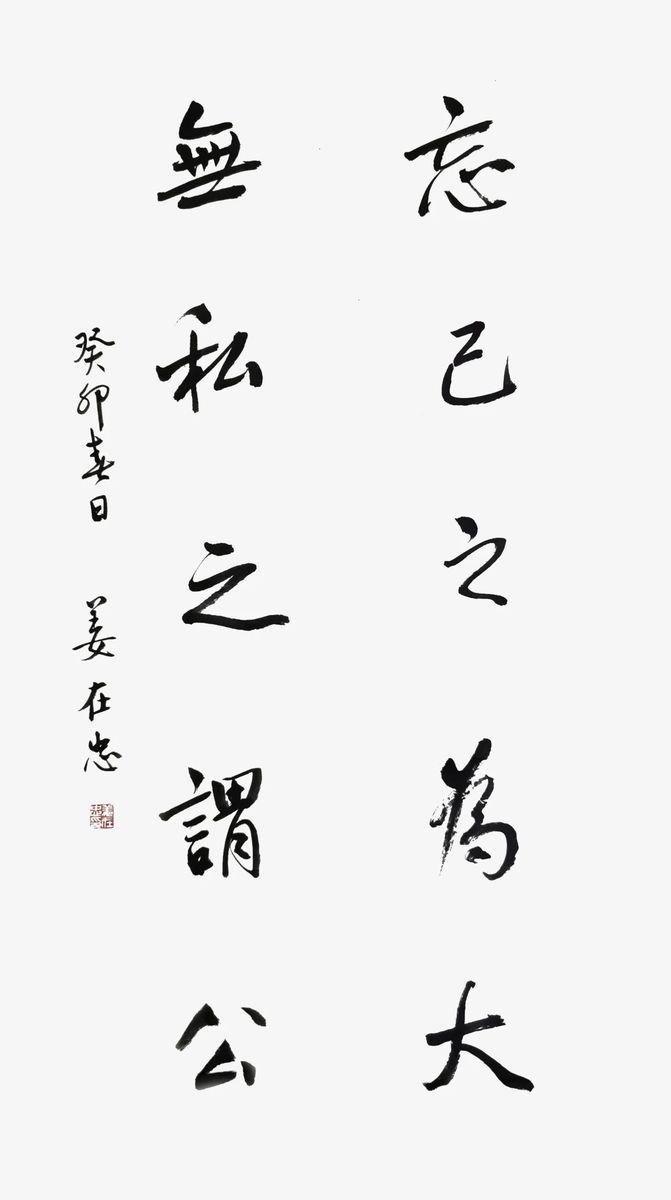 忘己之為大
無私之謂公
癸卯春日 姜在忠